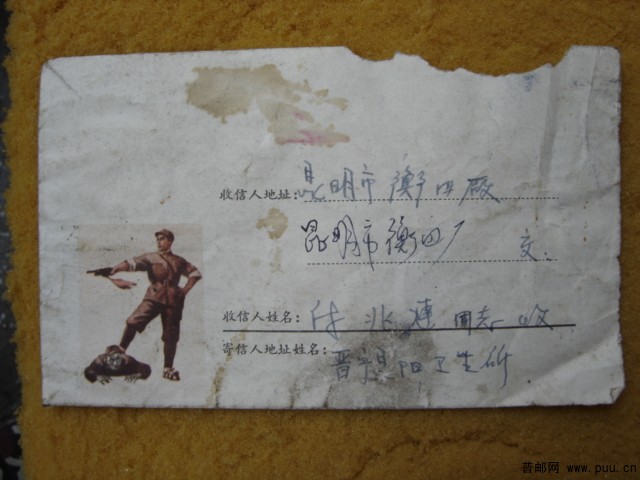 收信人地址：昆明市衡器厂
昆明市衡器厂 交
收信人姓名：付兆莲 同志 收
寄信人地址姓名：
晋宁昆阳卫生所
普邮网 www.puu.cn